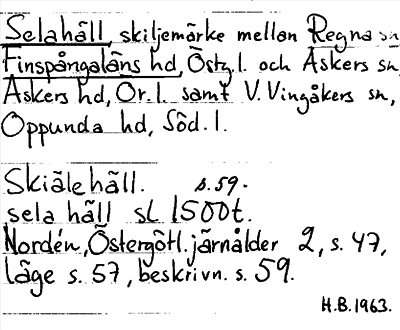 Selahäll, skiljemärke mellan Regna sn
Finspångaläns hd, Östg.l. och Askers sn,
Askers hd, Ör.l. samt V. Vingåkers sn,
Oppunda hd, Söd.l.
Skiälehäll. s.59.
sela häll sl 1500t.
Nordén, Östergötl. järnålder 2, s. 47,
läge s. 57, beskrivn. s. 59.
H.B.1963.